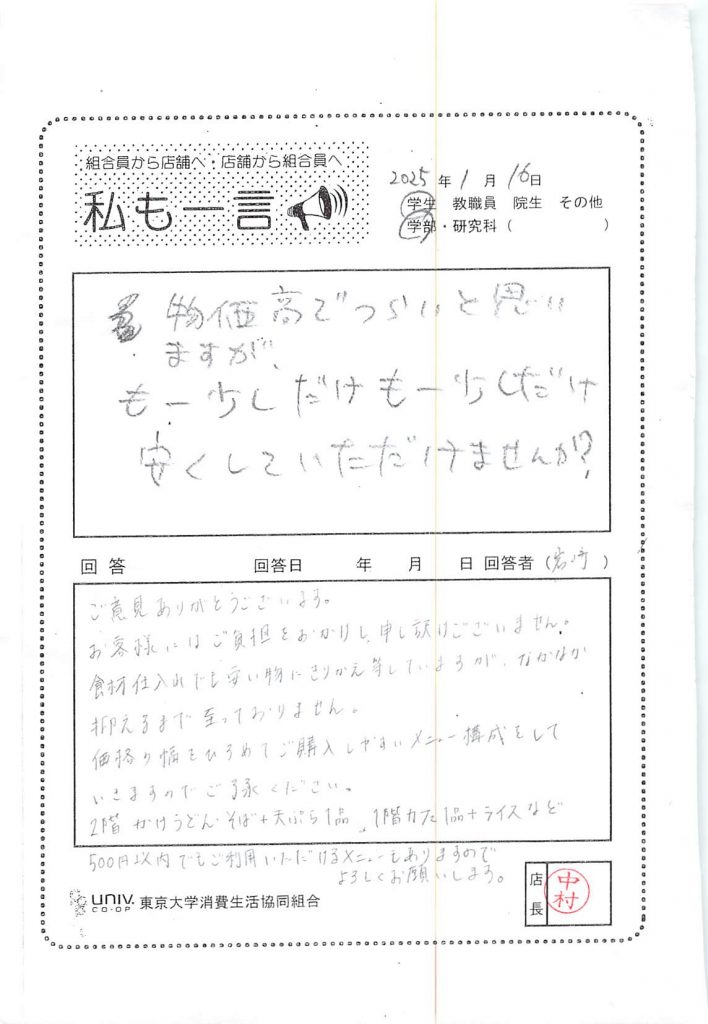 組合員から店舗へ・店舗から組合員へ
私も一言
2025年1月16日
学生 教職員 院生 その他
学部・研究科( )
物価高でつらいと思い
ますが、
もー少しだけもー少しだけ
安くしていただけませんか?
回答 回答日 年 月 日 回答者(岩崎)
ご意見ありがとうございます。
お客様にはご負担をおかけし、申し訳けございません。
食材仕入れでも安い物にきりかえ等していますが、なかなか
抑えるまで至っておりません。
価格の幅をひろめてご購入しやすいメニュー構成をして
いきますのでご了承ください。
2階 かけうどん・そば+天ぷら1品、1階 1品+ライスなど
500円以内でもご利用いただけるメニューもありますので
よろしくお願いします。
UNIV.
CO-OP
東京大学消費生活協同組合
店長
中村